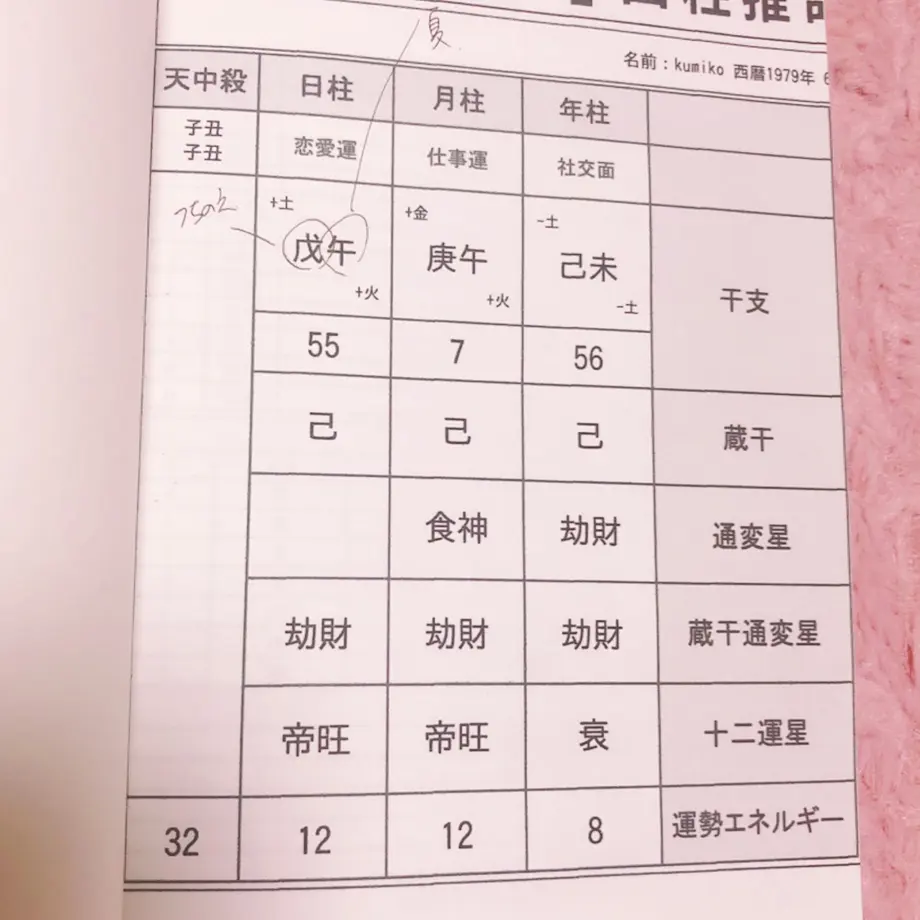 柱推
夏
名前：kumiko 西暦1979年
天中殺 日柱 月柱 年柱
子丑
子丑
恋愛運 仕事運 社交面
つちのえ
+土 +金 -土
戊午 庚午 己未 干支
+火 +火 -土
55 7 56
己 己 己 蔵干
食神 劫財 通変星
劫財 劫財 劫財 蔵干通変星
帝旺 帝旺 衰 十二運星
32 12 12 8 運勢エネルギー